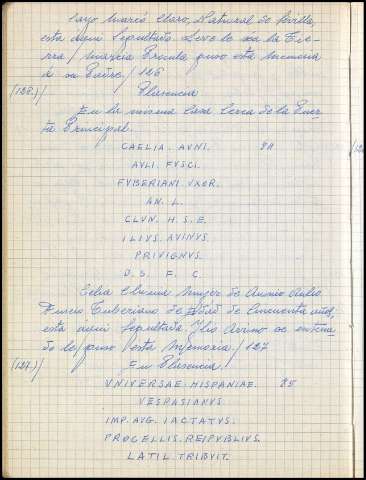 Cayo Mario Claro, Natural de Sevilla,
esta aqui Sepultado Seve le sea la Tie-
rra / Marcia Procula puso esta memoria
á su Padre / 126
(128.)/ Plasencia
En la misma Casa Cerca de la Puer-
ta Principal.
CAELIA . AVNI. 84
AVLI . FVSCI.
FVBERIANI . VXOR.
AN. L.
CLVN. H. S. E.
ILIVS . AVINVS.
PRIVIGNVS.
D. S. F. C.
Celia Clunia Muger de Aunio Aulio
Fuscio Tuberiano de Edad de Cincuenta años,
esta aqui Sepultada. Ilio Avino su entena-
do le puso esta Memoria / 127
(127.)/ En Plasencia
VNIVERSAE . HISPANIAE. 85
VESPASIANVS
IMP. AVG. IACTATVS.
PROCELLIS . REIPVBLIVS.
LATIL . TRIBVIT.